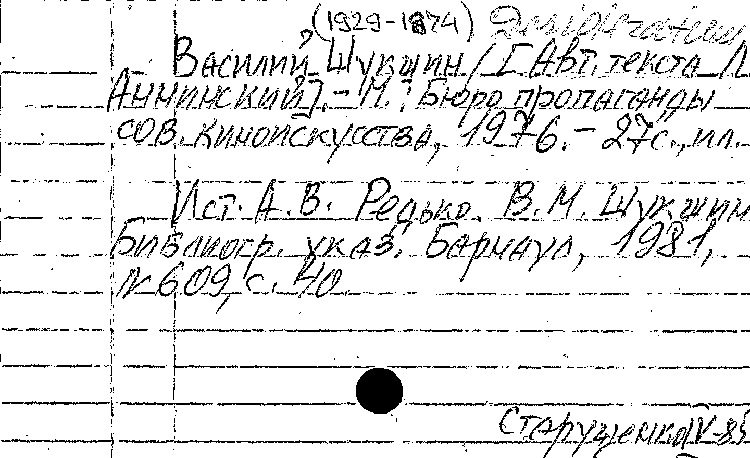 (1929-1974) Desiderata
Василий Шукшин / [Авт. текста Л.
Аннинский]. - М.: Бюро пропаганды
сов. киноискусства, 1976. - 27с., ил.
Ист. А.В. Редько. В.М. Шукшин
Библиогр. указ. Барнаул, 1981,
№ 609, с. 40
Старущенко IV-85